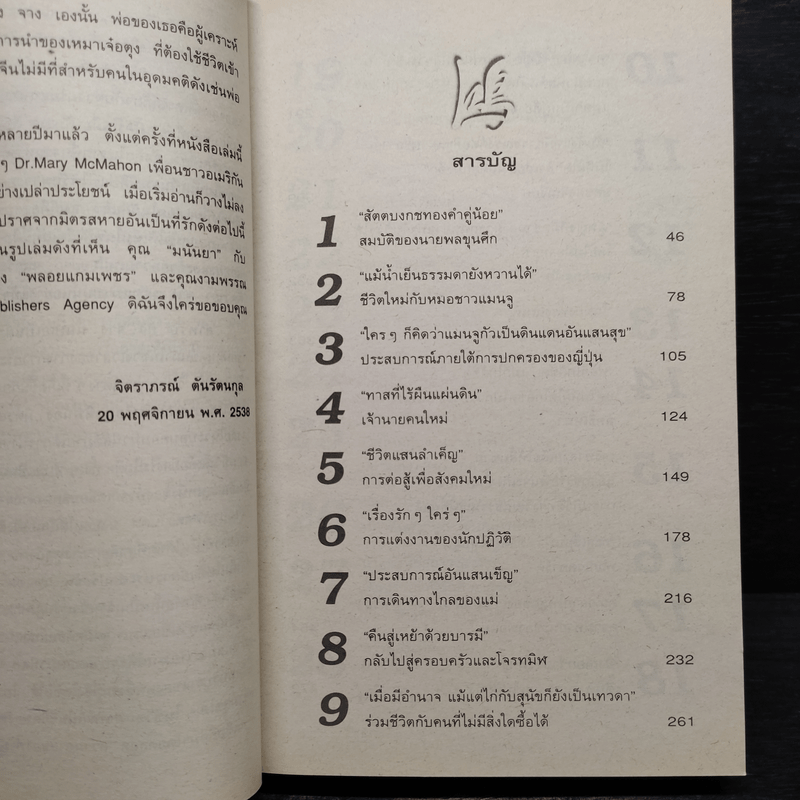 จาง เองนั้น พ่อของเธอคือผู้เคราะห์
การนำของเหมาเจ๋อตุง ที่ต้องใช้ชีวิตเข้า
จีนไม่มีที่สำหรับคนในอุดมคติดังเช่นพ่อ
หลายปีมาแล้ว ตั้งแต่ครั้งที่หนังสือเล่มนี้
ๆ Dr.Mary McMahon เพื่อนชาวอเมริกัน
ย่างเปล่าประโยชน์ เมื่อเริ่มอ่านก็วางไม่ลง
ปราศจากมิตรสหายอันเป็นที่รักดังต่อไปนี้
นรูปเล่มดังที่เห็น คุณ "มนันยา" กับ
"พลอยแกมเพชร" และคุณงามพรรณ
blishers Agency ดิฉันจึงใคร่ขอขอบคุณ
จิตราภรณ์ ตันรัตนกุล
20 พฤศจิกายน พ.ศ. 2538
鴻
สารบัญ
1 "สัตตบงกชทองคำคู่น้อย"
สมบัติของนายพลขุนศึก 46
2 "แม้น้ำเย็นธรรมดายังหวานได้"
ชีวิตใหม่กับหมอชาวแมนจู 78
3 "ใคร ๆ ก็คิดว่าแมนจูกัวเป็นดินแดนอันแสนสุข"
ประสบการณ์ภายใต้การปกครองของญี่ปุ่น 105
4 "ทาสที่ไร้ผืนแผ่นดิน"
เจ้านายคนใหม่ 124
5 "ชีวิตแสนลำเค็ญ"
การต่อสู้เพื่อสังคมใหม่ 149
6 "เรื่องรัก ๆ ใคร่ ๆ"
การแต่งงานของนักปฏิวัติ 178
7 "ประสบการณ์อันแสนเข็ญ"
การเดินทางไกลของแม่ 216
8 "คืนสู่เหย้าด้วยบารมี"
กลับไปสู่ครอบครัวและโจรทมิฬ 232
9 "เมื่อมีอำนาจ แม้แต่ไก่กับสุนัขก็ยังเป็นเทวดา"
ร่วมชีวิตกับคนที่ไม่มีสิ่งใดซื้อได้ 261